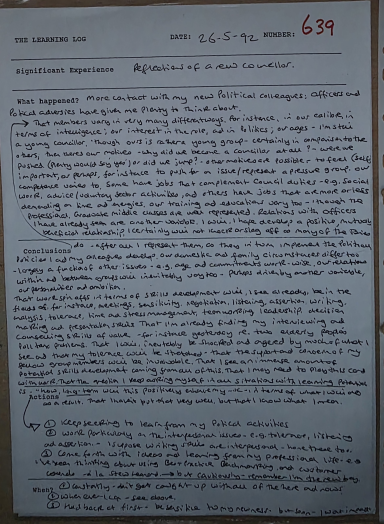 THE LEARNING LOG DATE: 26-5-92 NUMBER: 639
Significant Experience Reflections of a new councillor.
What happened? More contact with my new Political colleagues; officers and
Political adversaries have given me plenty to think about.
That members vary in very many different ways, for instance, in our calibre, in
terms of intelligence; our interest in the role, and in politics; our ages - I'm still
a young councillor, though ours is a rather young group - certainly in comparison to the
others, then there's our motives - why did we become a councillor at all? - were we
pushed (plenty would say yes) or did we jump? - other motives are possible - to feel (self)
important, or perhaps, for instance to push for an issue/represent a pressure group. Our
competence varies to, some have jobs that complement Council duties - e.g. Social
work, advice/voluntary sector activities, and others have jobs that are more or less
demanding on time and energies, our training and educations vary too - though the
professional, Graduate middle classes are well represented. Relations with officers
I have already seen are another variable. I will, I hope, develop a positive mutually
beneficial relationship. I certainly will not
Conclusions do - after all I represent them, as they in turn, implement the political
Policies I and my colleagues develop. Our domestic and family circumstances differ too
- largely a function of other issues - e.g. age and commitments work-wise. Our relations
within and between groups will inevitably vary too - perhaps driven by another variable,
our personalities and ambition.
That work spin offs in terms of skills development will, I see already, be in the
fields of for instance, meetings, time saving, negotiation, listening, assertion, writing,
analysis, tolerance, time and stress management, team working, leadership, decision
making and presentation skills. That I'm already finding my interviewing and
Counselling skills of value - for instance yesterday re. two elderly people's
That I will, inevitably be shocked and angered by much of what I
see and that my tolerance will be stretched - that the support and concern of my
fellow group members will be invaluable. That I see an immense amount of
potential skills development coming from all of this. That I may need to play this card
with work. That the question I keep asking myself in all situations with learning potential
is - "How, long-term will this positively affect my life - in terms of what I will do
Actions as a result. That I haven't put that very well, but that I know what I mean.
① Keep seeking to learn from my Political activities
② Work particularly on the interpersonal issues - e.g. tolerance, listening
and assertion. - I suppose writing skills are interpersonal, I have these too.
③ Come forth with ideas and learning from my professional life - e.g.
I've been thinking about using Benchmarking and customer
- but cautiously - remember I'm the new boy.
When? ① Constantly - don't get caught up with all of the here and nows
② Wherever I can - see above.
③ Held back at first - be sensitive to my newness -